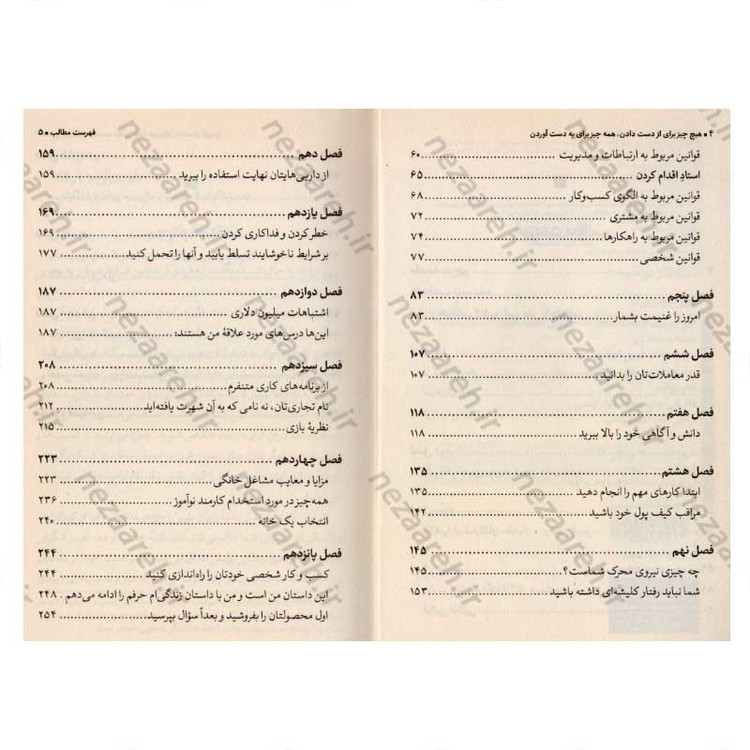 ۴ ■ هیچ چیز برای از دست دادن، همه چیز برای به دست آوردن
قوانین مربوط به ارتباطات و مدیریت ........................ ۶۰
استادِ اقدام کردن ........................ ۶۵
قوانین مربوط به الگوی کسب‌وکار ........................ ۶۸
قوانین مربوط به مشتری ........................ ۷۲
قوانین مربوط به راهکارها ........................ ۷۴
قوانین شخصی ........................ ۷۷
فصل پنجم ........................ ۸۳
امروز را غنیمت بشمار ........................ ۸۳
فصل ششم ........................ ۱۰۷
قدر معاملات‌تان را بدانید ........................ ۱۰۷
فصل هفتم ........................ ۱۱۸
دانش و آگاهی خود را بالا ببرید ........................ ۱۱۸
فصل هشتم ........................ ۱۳۵
ابتدا کارهای مهم را انجام دهید ........................ ۱۳۵
مراقب کیف پول خود باشید ........................ ۱۴۲
فصل نهم ........................ ۱۴۵
چه چیزی نیروی محرک شماست؟ ........................ ۱۴۵
شما نباید رفتار کلیشه‌ای داشته باشید ........................ ۱۵۳
فهرست مطالب ■ ۵
فصل دهم ........................ ۱۵۹
از داریی‌هایتان نهایت استفاده را ببرید ........................ ۱۵۹
فصل یازدهم ........................ ۱۶۹
خطر کردن و فداکاری کردن ........................ ۱۶۹
بر شرایط ناخوشایند تسلط یابید و آنها را تحمل کنید ........................ ۱۷۷
فصل دوازدهم ........................ ۱۸۷
اشتباهات میلیون دلاری ........................ ۱۸۷
این‌ها درس‌های مورد علاقهٔ من هستند: ........................ ۱۸۷
فصل سیزدهم ........................ ۲۰۸
از برنامه‌های کاری متنفرم ........................ ۲۰۸
نام تجاری‌تان، نه نامی که به آن شهرت یافته‌اید ........................ ۲۱۲
نظریهٔ بازی ........................ ۲۱۵
فصل چهاردهم ........................ ۲۲۳
مزایا و معایب مشاغل خانگی ........................ ۲۲۳
همه‌چیز در مورد استخدام کارمند نوآموز ........................ ۲۳۶
انتخاب یک خانه ........................ ۲۴۰
فصل پانزدهم ........................ ۲۴۴
کسب و کار شخصی خودتان را راه‌اندازی کنید ........................ ۲۴۴
این داستان من است و من با داستان زندگی‌ام حرفم را ادامه می‌دهم . ۲۴۸
اول محصولتان را بفروشید و بعداً سؤال بپرسید ........................ ۲۵۴
nezaareh.ir